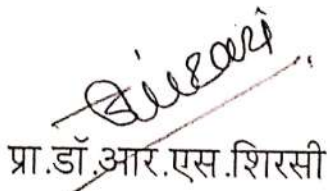 प्रा.डॉ.आर.एस.शिरसी